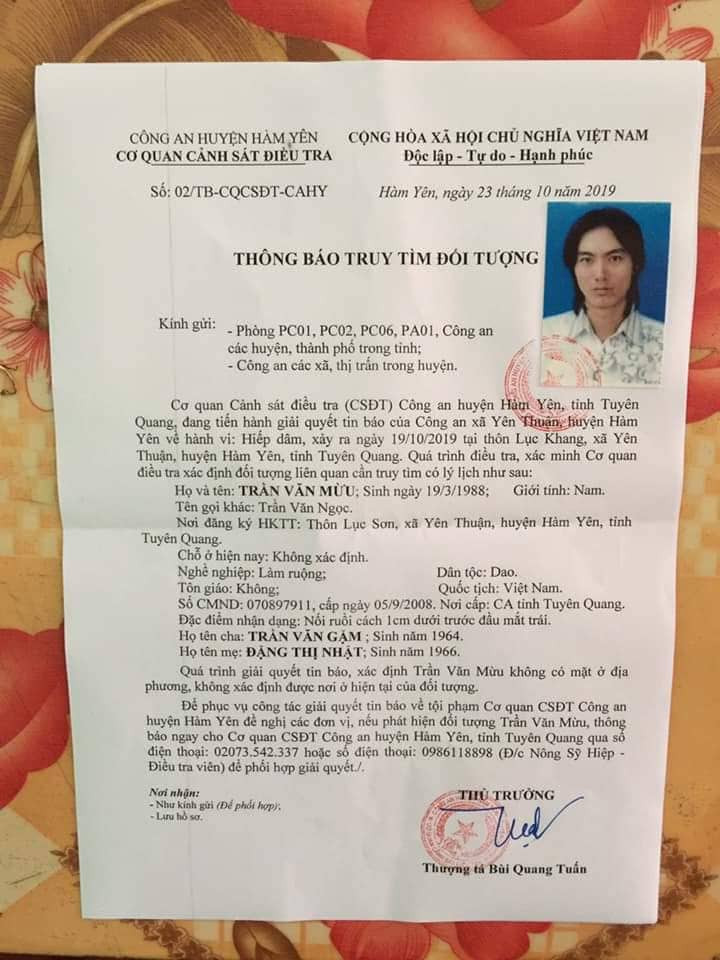 CÔNG AN HUYỆN HÀM YÊN
CƠ QUAN CẢNH SÁT ĐIỀU TRA
Số: 02/TB-CQCSĐT-CAHY
CỘNG HÒA XÃ HỘI CHỦ NGHĨA VIỆT NAM
Độc lập - Tự do - Hạnh phúc
Hàm Yên, ngày 23 tháng 10 năm 2019
THÔNG BÁO TRUY TÌM ĐỐI TƯỢNG
Kính gửi:
- Phòng PC01, PC02, PC06, PA01, Công an
các huyện, thành phố trong tỉnh;
- Công an các xã, thị trấn trong huyện.
Cơ quan Cảnh sát điều tra (CSĐT) Công an huyện Hàm Yên, tỉnh Tuyên
Quang, đang tiến hành giải quyết tin báo của Công an xã Yên Thuận, huyện Hàm
Yên về hành vi: Hiếp dâm, xảy ra ngày 19/10/2019 tại thôn Lục Khang, xã Yên
Thuận, huyện Hàm Yên, tỉnh Tuyên Quang. Quá trình điều tra, xác minh Cơ quan
điều tra xác định đối tượng liên quan cần truy tìm có lý lịch như sau:
Họ và tên: TRẦN VĂN MỪU; Sinh ngày 19/3/1988; Giới tính: Nam.
Tên gọi khác: Trần Văn Ngọc.
Nơi đăng ký HKTT: Thôn Lục Sơn, xã Yên Thuận, huyện Hàm Yên, tỉnh
Tuyên Quang.
Chỗ ở hiện nay: Không xác định.
Nghề nghiệp: Làm ruộng; Dân tộc: Dao.
Tôn giáo: Không; Quốc tịch: Việt Nam.
Số CMND: 070897911, cấp ngày 05/9/2008. Nơi cấp: CA tỉnh Tuyên Quang.
Đặc điểm nhận dạng: Nốt ruồi cách 1cm dưới trước đầu mắt trái.
Họ tên cha: TRẦN VĂN GẶM ; Sinh năm 1964.
Họ tên mẹ: ĐẶNG THỊ NHẬT; Sinh năm 1966.
Quá trình giải quyết tin báo, xác định Trần Văn Mừu không có mặt ở địa
phương, không xác định được nơi ở hiện tại của đối tượng.
Để phục vụ công tác giải quyết tin báo về tội phạm Cơ quan CSĐT Công an
huyện Hàm Yên đề nghị các đơn vị, nếu phát hiện đối tượng Trần Văn Mừu, thông
báo ngay cho Cơ quan CSĐT Công an huyện Hàm Yên, tỉnh Tuyên Quang qua số
điện thoại: 02073.542.337 hoặc số điện thoại: 0986118898 (Đ/c Nông Sỹ Hiệp -
Điều tra viên) để phối hợp giải quyết./.
Nơi nhận:
- Như kính gửi (Để phối hợp);
- Lưu hồ sơ.
THỦ TRƯỞNG
Thượng tá Bùi Quang Tuấn